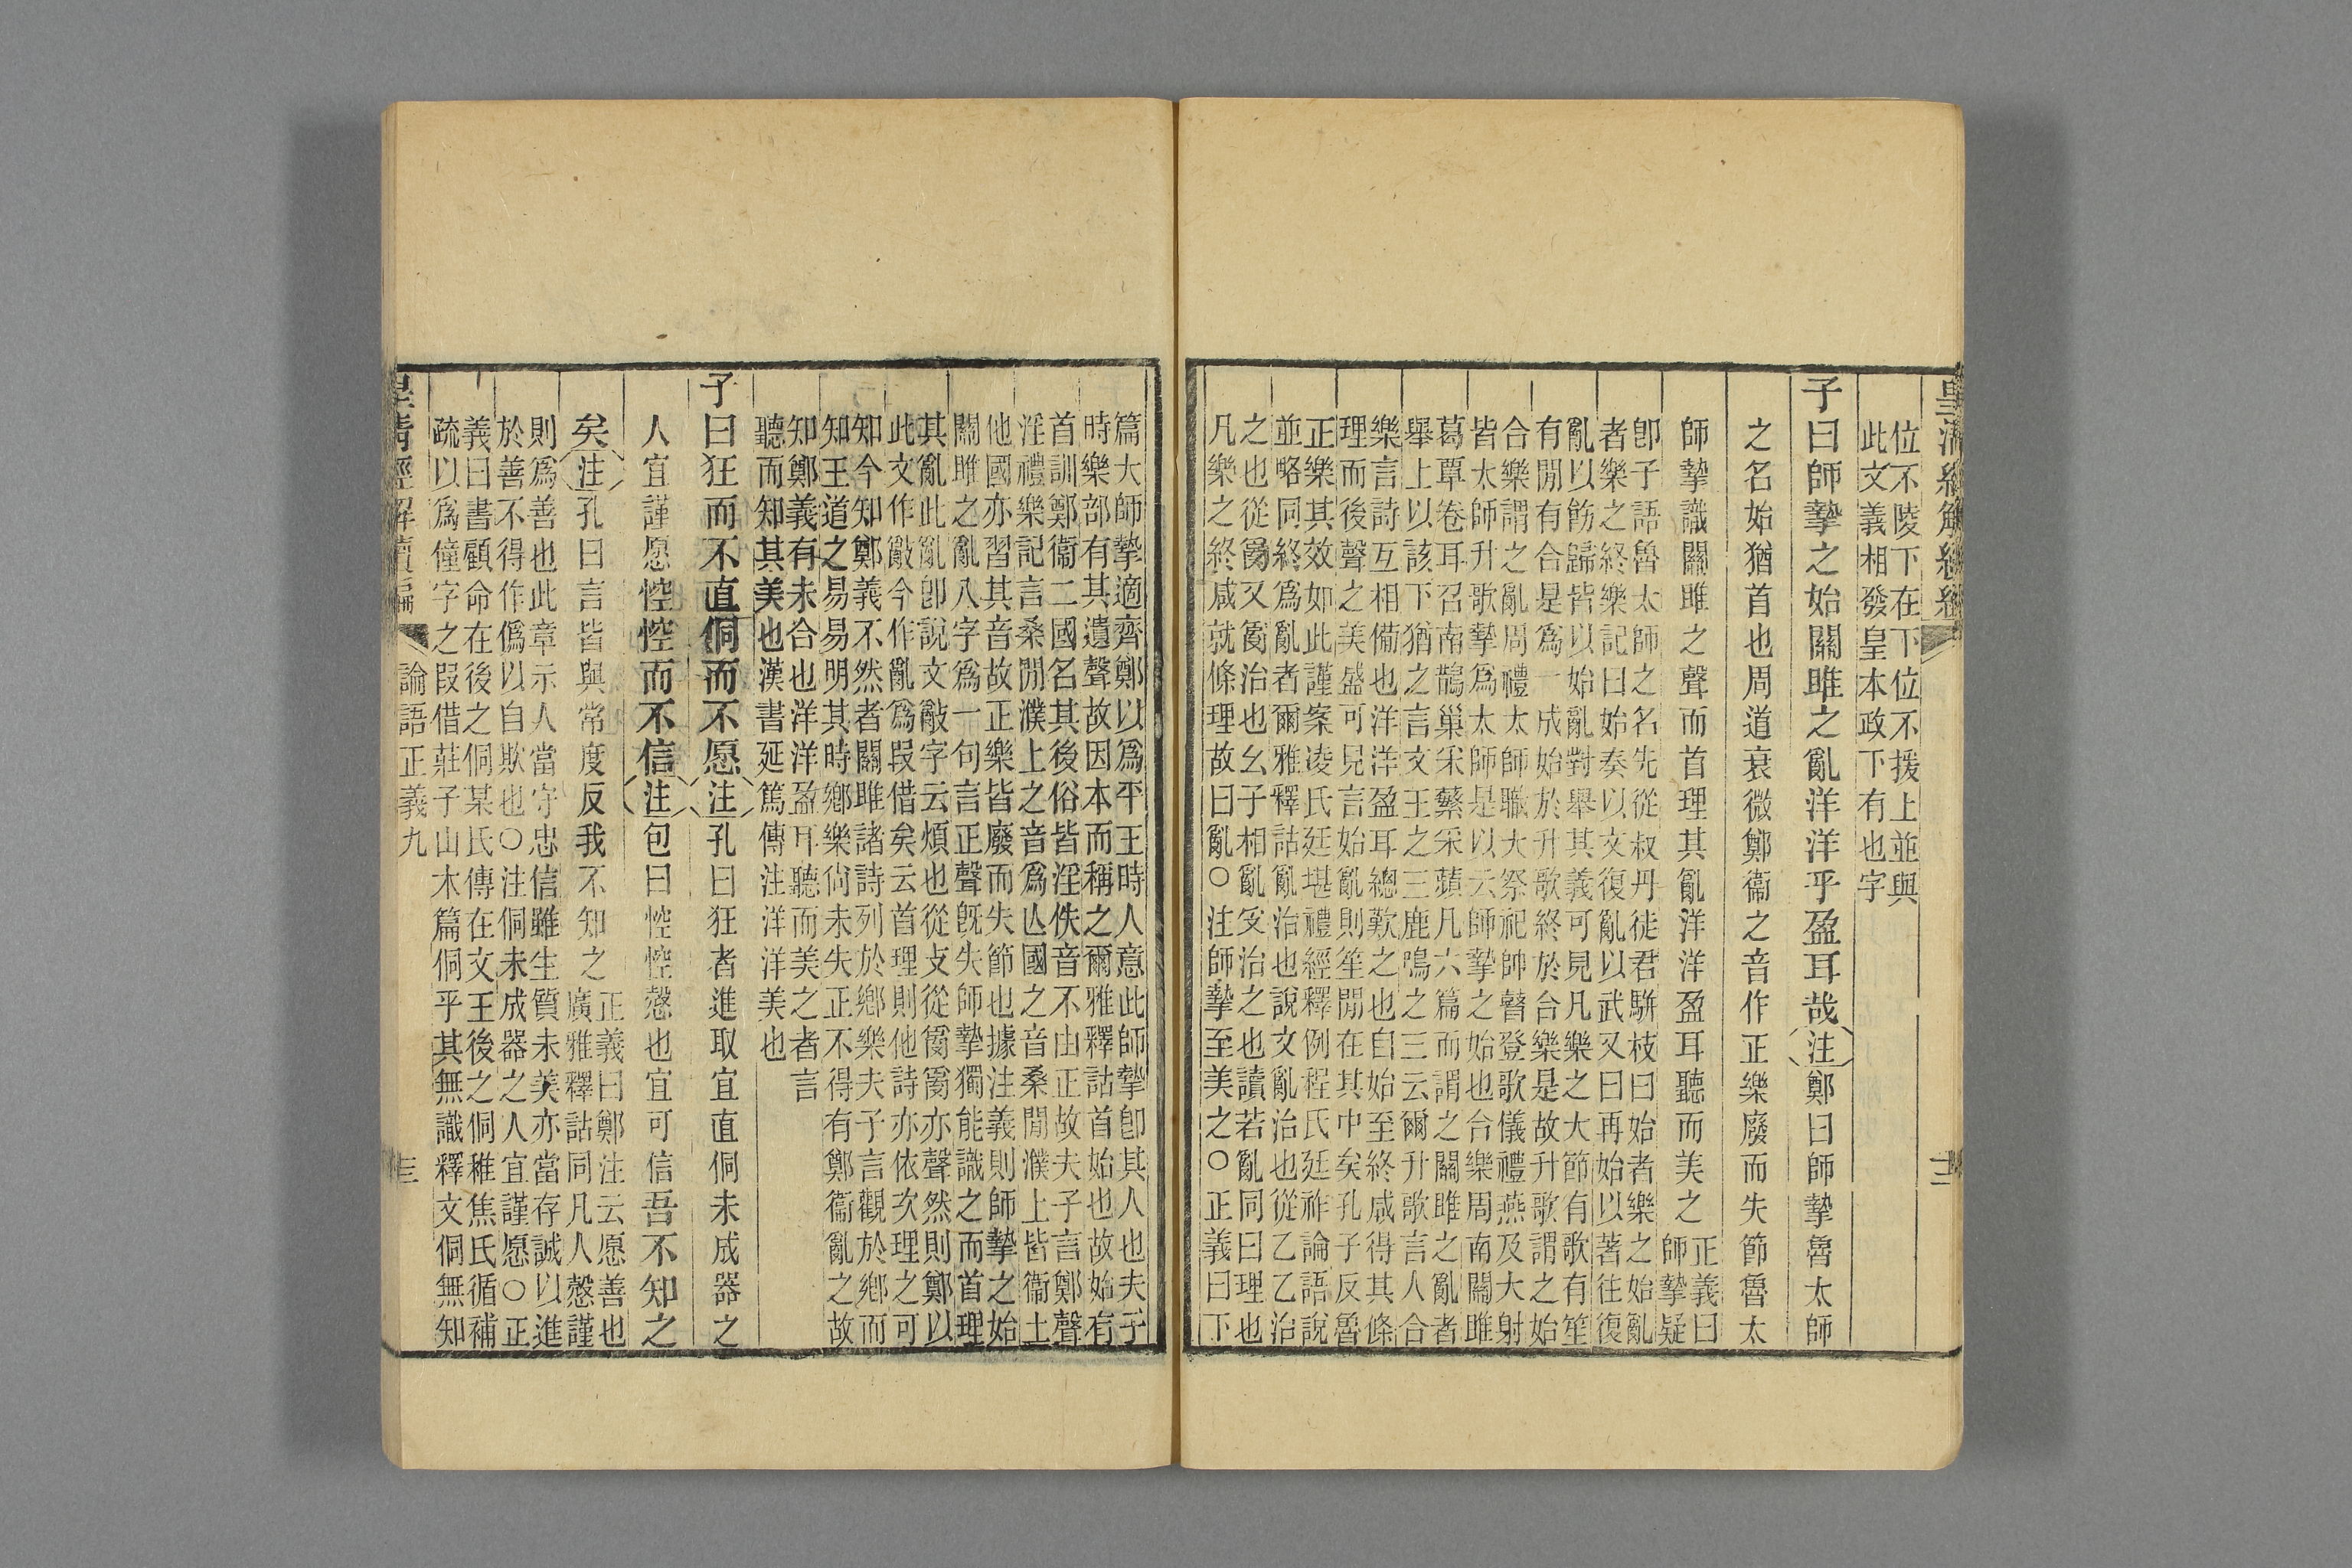 皇清經解續編
位不陵下在下位不援上並與
此文義相發皇本政下有也字
子曰師摯之始關雎之亂洋洋乎盈耳哉注鄭曰師摯魯太師
之名始猶首也周道衰微鄭衞之音作正樂廢而失節魯太
師摯識關雎之聲而首理其亂洋洋盈耳聽而美之正義曰
師摯疑
卽子語魯太師之名先從叔丹徒君駢枝曰始者樂之始亂
者樂之終樂記曰始奏以文復亂以武又曰再始以著往復
亂以飭歸皆以始亂對舉其義可見凡樂之大節有歌有笙
有閒有合是爲一成始於升歌終於合樂是故升歌謂之始
合樂謂之亂周禮太師職大祭祀帥瞽登歌儀禮燕及大射
皆太師升歌摯爲太師是以云師摯之始也合樂周南關雎
葛覃卷耳召南鵲巢采蘩采蘋凡六篇而謂之關雎之亂者
舉上以該下猶之言文王之三鹿鳴之三云爾升歌言人合
樂言詩互相備也洋洋盈耳總歎之也自始至終咸得其條
理而後聲之美盛可見言始亂則笙閒在其中矣孔子反魯
正樂其效如此謹案凌氏廷堪禮經釋例程氏廷祚論語說
並略同終爲亂者爾雅釋詁亂治也說文亂治也從乙乙治
之也從𤔔又𤔔治也幺子相亂𠬪治之也讀若亂同曰理也
凡樂之終咸就條理故曰亂○注師摯至美之○正義曰下
篇大師摯適齊鄭以爲平王時人意此師摯卽其人也夫子
時樂部有其遺聲故因本而稱之爾雅釋詁首始也故始有
首訓鄭衞二國名其後俗皆淫佚音不由正故夫子言鄭聲
淫禮樂記言桑閒濮上之音爲亾國之音桑閒濮上皆衞土
他國亦習其音故正樂皆廢而失節也據注義則師摯之始
關雎之亂八字爲一句言正聲旣失師摯獨能識之而首理
其亂此亂卽說文敽字云煩也從攴從𤔔𤔔亦聲然則鄭以
此文作敽今作亂爲叚借矣云首理則他詩亦依次理之可
知今知鄭義不然者關雎諸詩列於鄕樂夫子言觀於鄕而
知王道之易易明其時鄕樂尙未失正不得有鄭衞亂之故
知鄭義有未合也洋洋盈耳聽而美之者言
聽而知其美也漢書延篤傳注洋洋美也
子曰狂而不直侗而不愿注孔曰狂者進取宜直侗未成器之
人宜謹愿悾悾而不信注包曰悾悾慤也宜可信吾不知之
矣注孔曰言皆與常度反我不知之正義曰鄭注云愿善也
廣雅釋詁同凡人慤謹
則爲善也此章示人當守忠信雖生質未美亦當存誠以進
於善不得作僞以自欺也○注侗未成器之人宜謹愿○正
義曰書顧命在後之侗某氏傳在文王後之侗稚焦氏循補
疏以爲僮字之叚借莊子山木篇侗乎其無識釋文侗無知
皇清經解續編
論語正義九